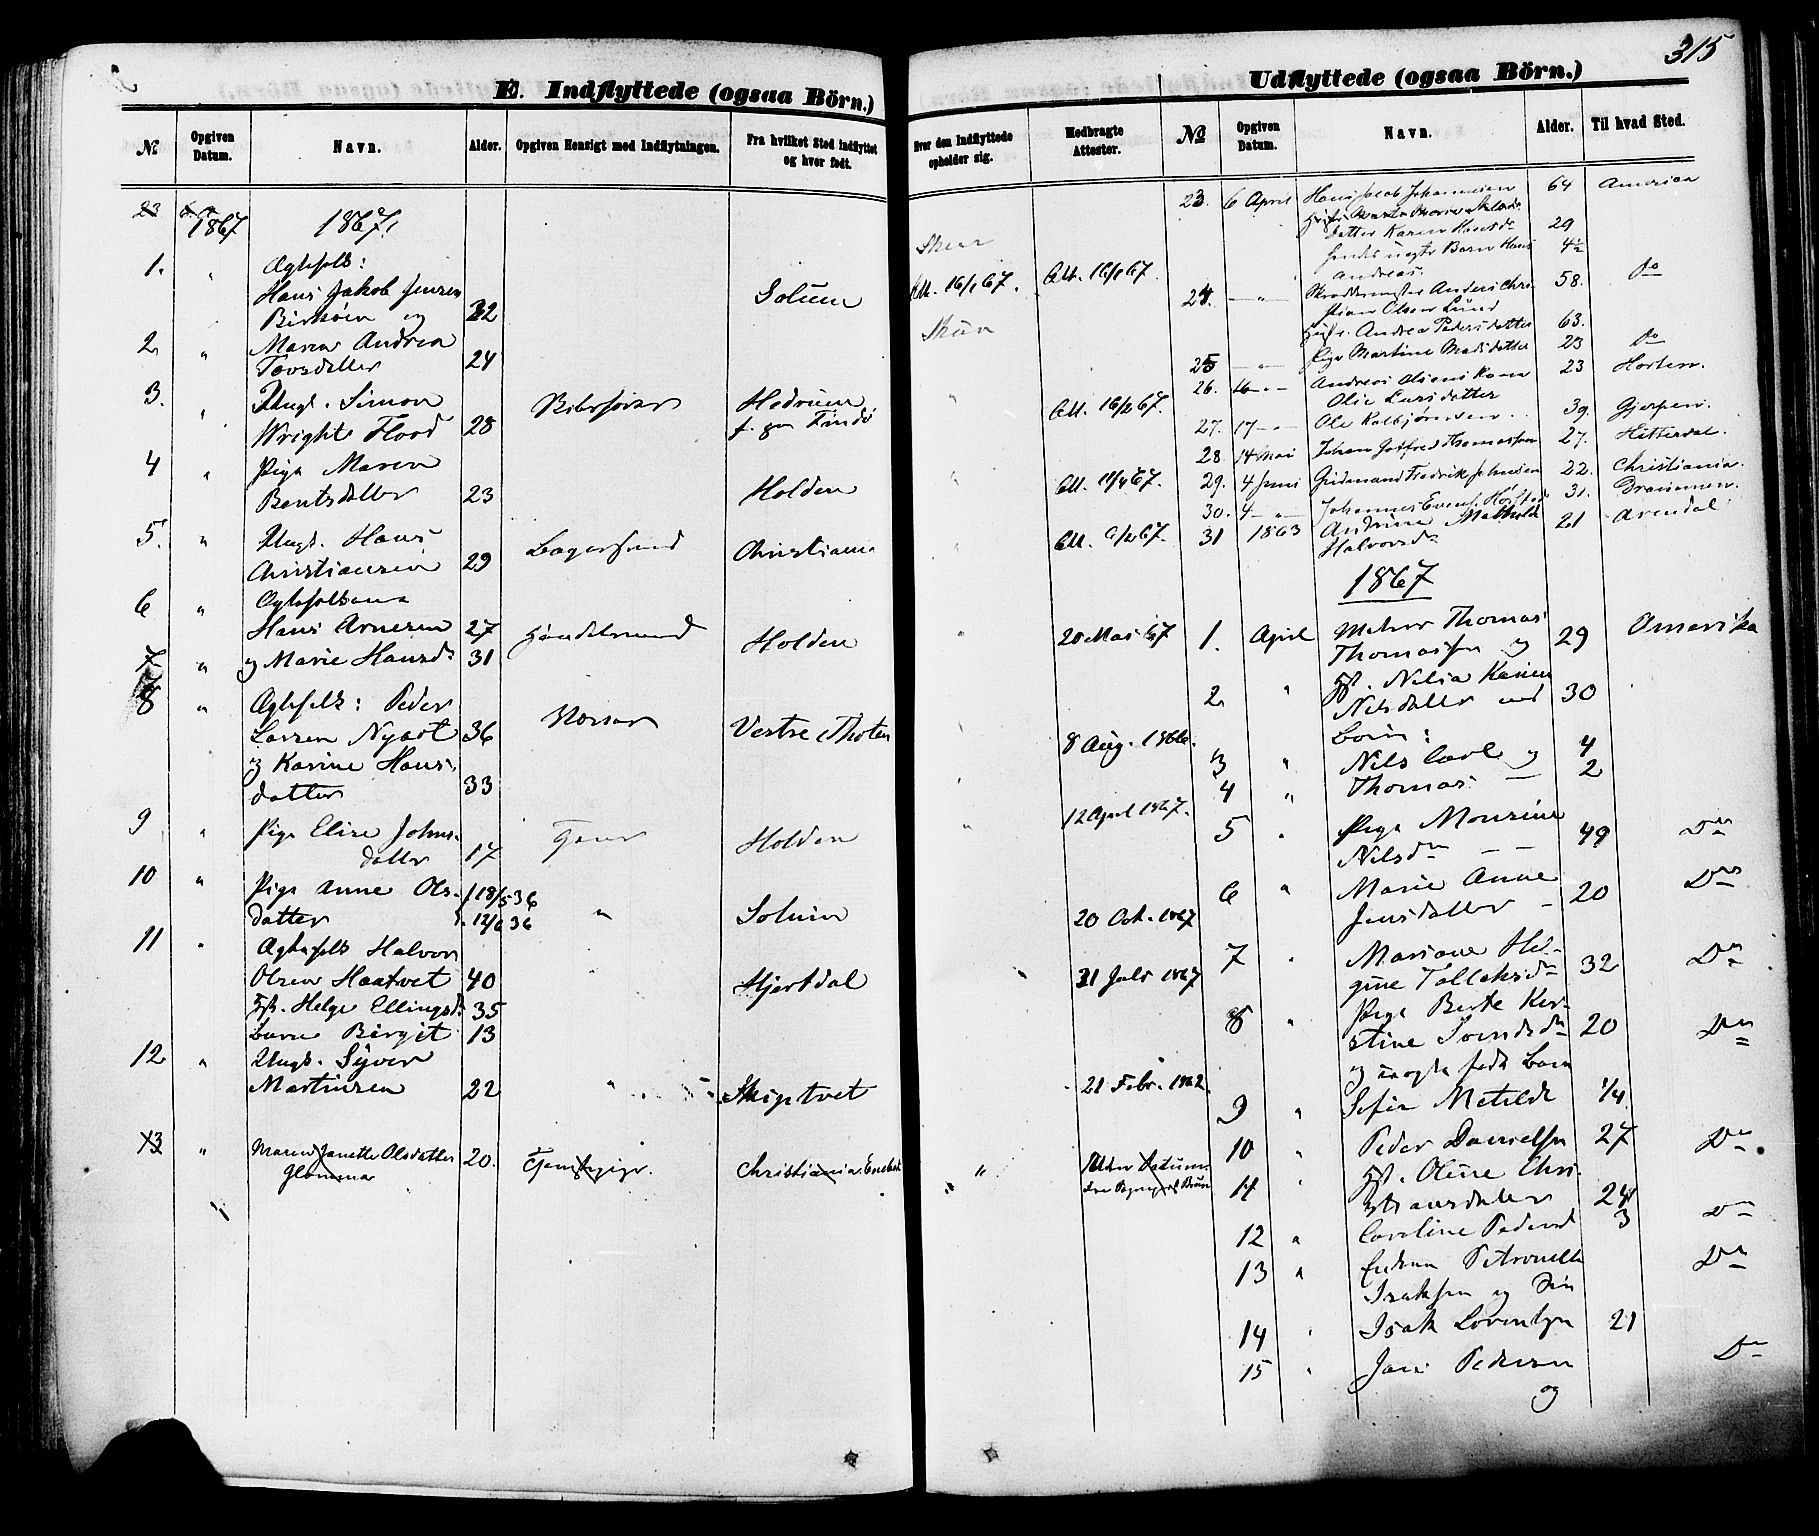 315
E. Indflyttede (ogsaa Börn.)
№
Opgiven Datum.
Navn.
Alder.
Opgiven Hensigt med Indflytningen.
Fra hvilket Sted indflyttet og hvor født.
Hvor den Indflyttede opholder sig.
Medbragte Attester.
23 1867 1867.
Skien
1. " Ægtefolk:
Hans Jakob Jensen
Birkøen og 32 Solum Att. 16/1 67. Att. 16/1 67.
2 " Maren Andrea Skien
Tovsdatter 24
3. " Ungk. Simon
Wright Flood 28 Hedrum Att. 16/2 67.
4 " Pige Maren
Bentsdatter 23 Holden " Att. 11/4 67.
5. " Ungk. Hans
Christiansen 29 Bagersvend Christiania " Att. 9/2 67.
6 " Ægtefolkene
Hans Arnesen 27 Handelsmand Holden " 20 Mai 67
7 " og Marie Hansdr 31
8 " Ægtefolk: Peder
Larsen Nyset 36 Vestre Thoten " 8 Aug. 1866.
og Karine Hans-
datter 33
9 " Pige Elise Johns-
datter 17 Tjene Holden " 12 April 1867.
10 " Pige Anne Ols- f 18/5 36
datter d. 12/6 36 " Solum 20 Oct. 1867
11 " Ægtefolk Halvor
Olsen Haatvet 40 Hjertdal 31 Juli 1867
Hst. Helge Ellingsd. 35
Barn Birgit 13
12 " Ungk. Syver
Martinsen 22 " Skiptvet 21 Febr. 1862
13 " Maren Janette Olsdatter 20. Tjenstepige. Christiania "
Glomma
Udflyttede (ogsaa Börn.)
№
Opgiven Datum.
Navn.
Alder.
Til hvad Sted.
23 6 April Hans Jacob Johannesen 64 America
datter Karen 29
hendes uægte Barn Hans 4½
Andreas.
24. — " — Skræddermester Anders Chri- 58. Do
stian Olsen Lund
Andrea Pedersdatter 63.
25 — " Pige Martine Madsdatter 23 Do
26. 16 — " — Andreas Olsens Kone 23 Horten.
Olie Larsdatter
27. 17 — " Ole Kolbjørnsen 39. Gjerpen.
28 14 Mai Johan Gotfred Thomassen 27. Hitterdal.
29. 4 Juni Fredrik Johnsen 22. Christiania.
30. 4 — " — Johannes 31. Drammen.
31 1863 Andrine Mathilde 21 Arendal
Halvorsdr
1867
1. April Thomas
Thomassen og 29 Amerika
2 " Hst. Nilia Karine
Nilsdatter med 30
Børn:
3 " Nils Carl og 4
4 " Thomas — 2
5 " Pige Monsine 49 Do
Nilsdr — —
6 " Marie Anne 20 Do
Jensdatter —
7 " Mariane He-
gine Tolleksdr 32 Do
8 " Pige Berte Kir-
stine Svendsdr 20 Do
og uægte født Barn
9 " Sofie Metilde 1/4
10 " Peder Danielsen 27 Do
11 " Hst. Oline Chri-
stiansdatter 24
12 " Caroline Pedersd 3 Do
13 " Enken Petronelle Do
Isaksen og Søn
14 " Isak Lorentzen 21
15 " Jens Pedersen Do
og